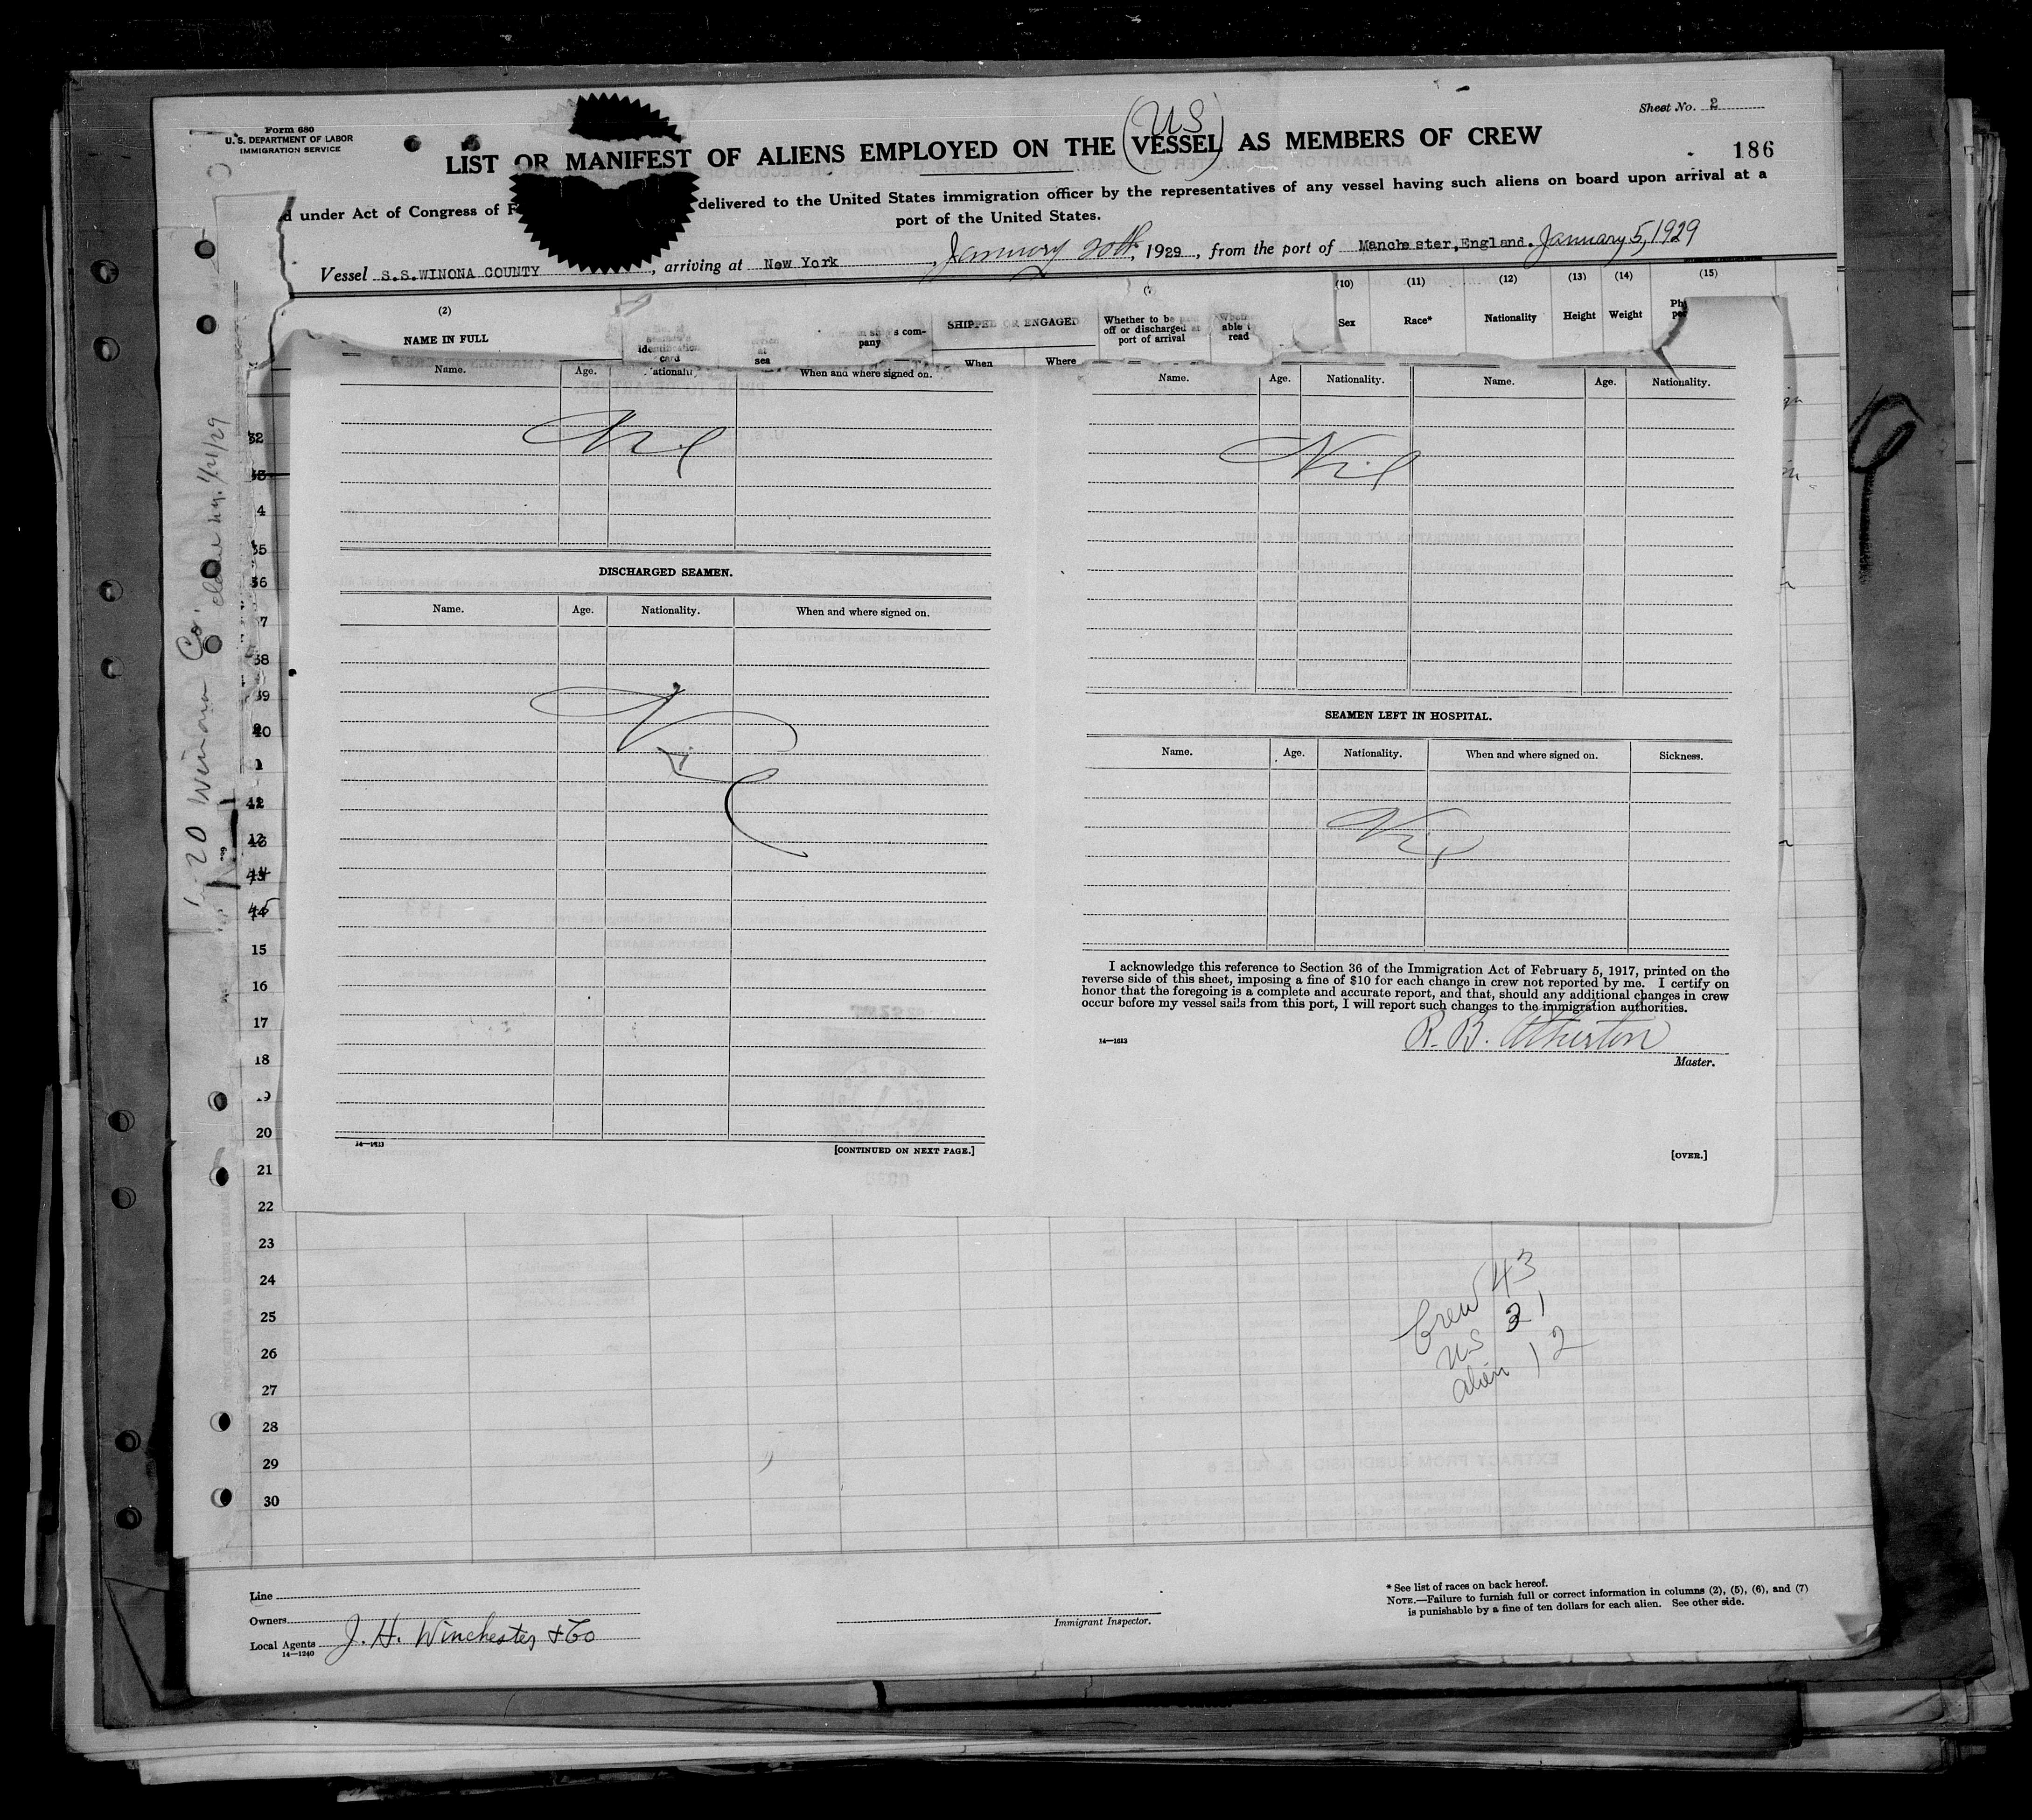 Form 680
U. S. DEPARTMENT OF LABOR
IMMIGRATION SERVICE
Sheet No. 2
US
LIST OR MANIFEST OF ALIENS EMPLOYED ON THE VESSEL AS MEMBERS OF CREW
186
under Act of Congress of
delivered to the United States immigration officer by the representatives of any vessel having such aliens on board upon arrival at a
port of the United States.
Vessel S.S.WINONA COUNTY, arriving at New York, January 20th, 1929, from the port of Manchester,England. January 5, 1929
(2)
(10) (11) (12) (13) (14) (15)
NAME IN FULL
identification card
at sea
com-
pany
SHIPPED OR ENGAGED
When Where
Whether to be
off or discharged at
port of arrival
able
read
Sex Race* Nationality Height Weight
Name. Age. When and where signed on.
Nil
DISCHARGED SEAMEN.
Name. Age. Nationality. When and where signed on.
Nil
14—1613
[CONTINUED ON NEXT PAGE.]
Name. Age. Nationality. Name. Age. Nationality.
Nil
SEAMEN LEFT IN HOSPITAL.
Name. Age. Nationality. When and where signed on. Sickness.
Nil
I acknowledge this reference to Section 36 of the Immigration Act of February 5, 1917, printed on the
reverse side of this sheet, imposing a fine of $10 for each change in crew not reported by me. I certify on
honor that the foregoing is a complete and accurate report, and that, should any additional changes in crew
occur before my vessel sails from this port, I will report such changes to the immigration authorities.
R. B. Atherton
14—1613
Master.
[OVER.]
1-20 Winona Co.
1/21/29
32
35
36
38
39
42
15
16
17
18
20
21
22
23
24
25
26
27
28
29
30
Crew 43
US 31
alien 12
Line
Owners
Local Agents J. H. Winchester & Co
14—1240
Immigrant Inspector.
* See list of races on back hereof.
NOTE.—Failure to furnish full or correct information in columns (2), (5), (6), and (7)
is punishable by a fine of ten dollars for each alien. See other side.